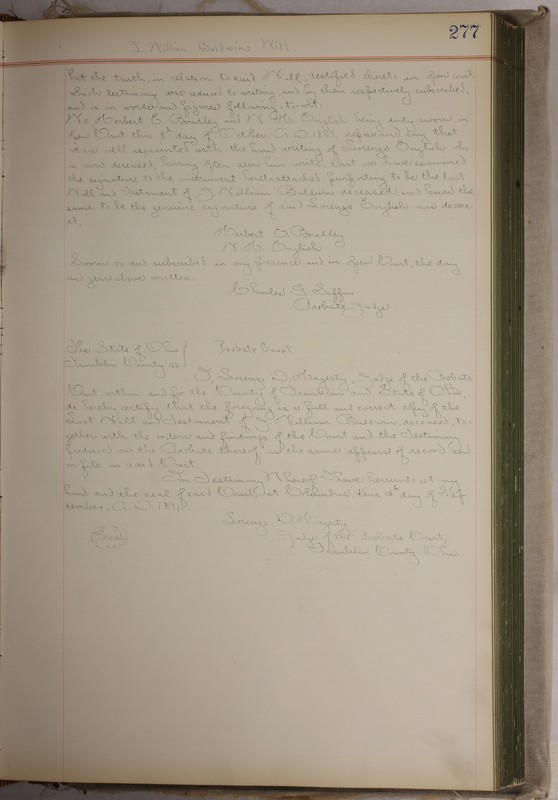 277
J. William Baldwins Will
but the truth, in relation to said Will, testified thereto in open Court
which testimony was reduced to writing, and by them respectively subscribed,
and is in words and figures following, to-wit:
We Herbert O. Bradley and W. H. English being duly sworn in
open Court this 8" day of October A.D. 1889, depose and say that
we are well acquainted with the hand writing of Lorenzo English who
is now deceased, having often seen him write that we have examined
the signature to the instrument hereto attached purporting to be the Last
Will and Testament of J. William Baldwin deceased, and know the
same to be the genuine signature of said Lorenzo English now deceas-
ed.
Herbert O. Bradley
W. H. English
Sworn to and subscribed in my presence and in open Court, the day
and year above written.
Charles G. Saffin
Probate Judge
The State of Ohio
Franklin County ss
Probate Court
I, Lorenzo D. Hagerty, Judge of the Probate
Court, within and for the County of Franklin and State of Ohio,
do hereby certify that the foregoing is a full and correct copy of the
Last Will and Testament of J. William Baldwin, deceased, to-
gether with the orders and findings of the Court and the Testimony
produced on the Probate thereof as the same appears of record and
on file in said Court.
In Testimony Whereof I have hereunto set my
hand and the seal of said Court, at Columbus, this 18th day of Sep-
tember A.D. 1891
Lorenzo D. Hagerty
Judge of the Probate Court,
Franklin County Ohio
Seal